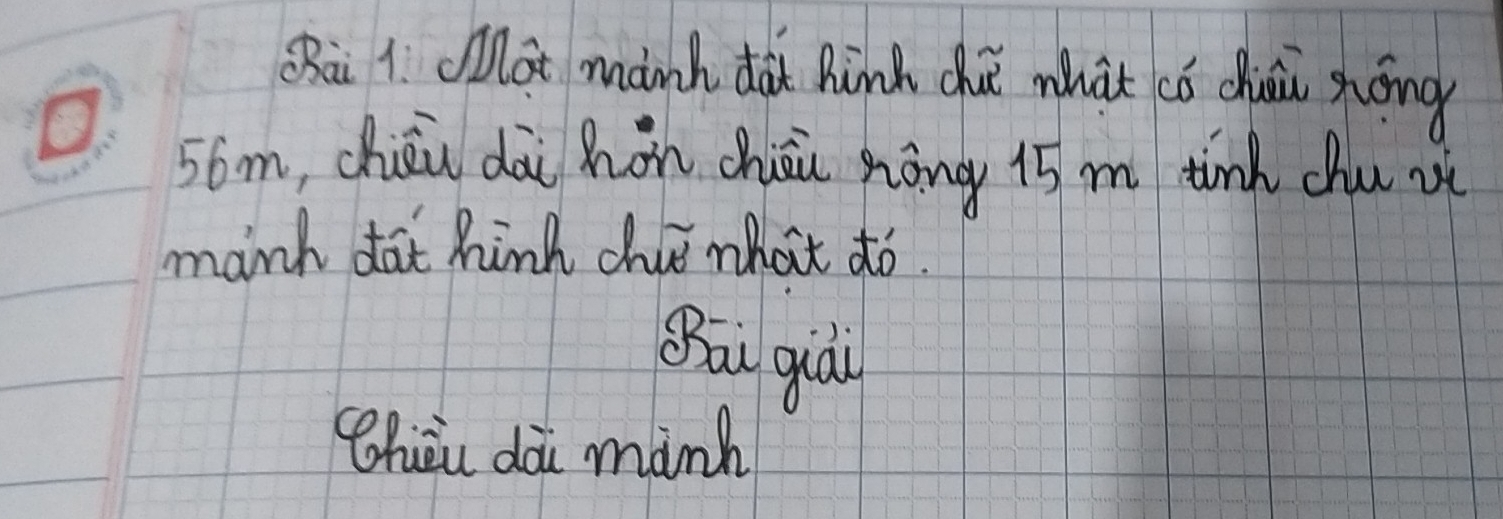 Bài 1: Một mảnh đất hình chữ nhật có chiều rộng
56m, chiều dài hơn chiều rộng 15 m tính chu vi
mảnh đất hình chữ nhật đó.
Bài giải
Chiều dài mảnh